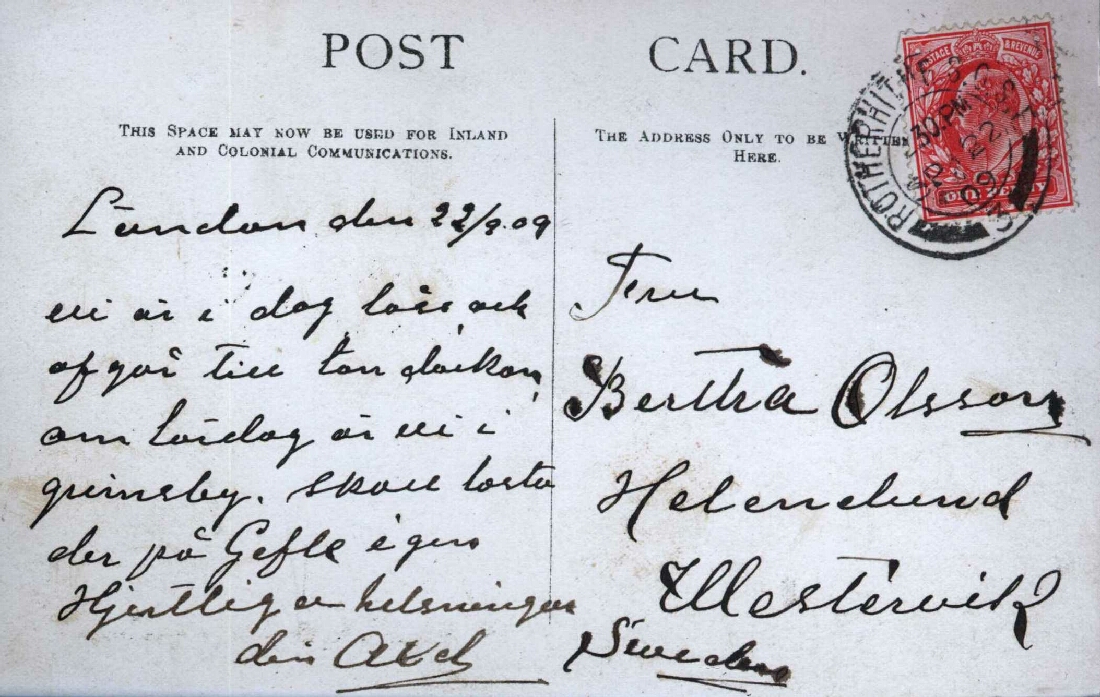 POST CARD.
THIS SPACE MAY NOW BE USED FOR INLAND
AND COLONIAL COMMUNICATIONS.
THE ADDRESS ONLY TO BE WRITTEN
HERE.
POSTAGE & REVENUE
ONE PENNY
ROTHERHITHE S.O.
30 PM
22
09
London den 22/9.09
vi är i dag loss ock
afgår till
om lördag är vi i
grimsby. skall lasta
der på Gefle igen
Hjertliga helsningar
din Axel
Fru
Bertha Olsson
Helenelund
Westervik
Sweden